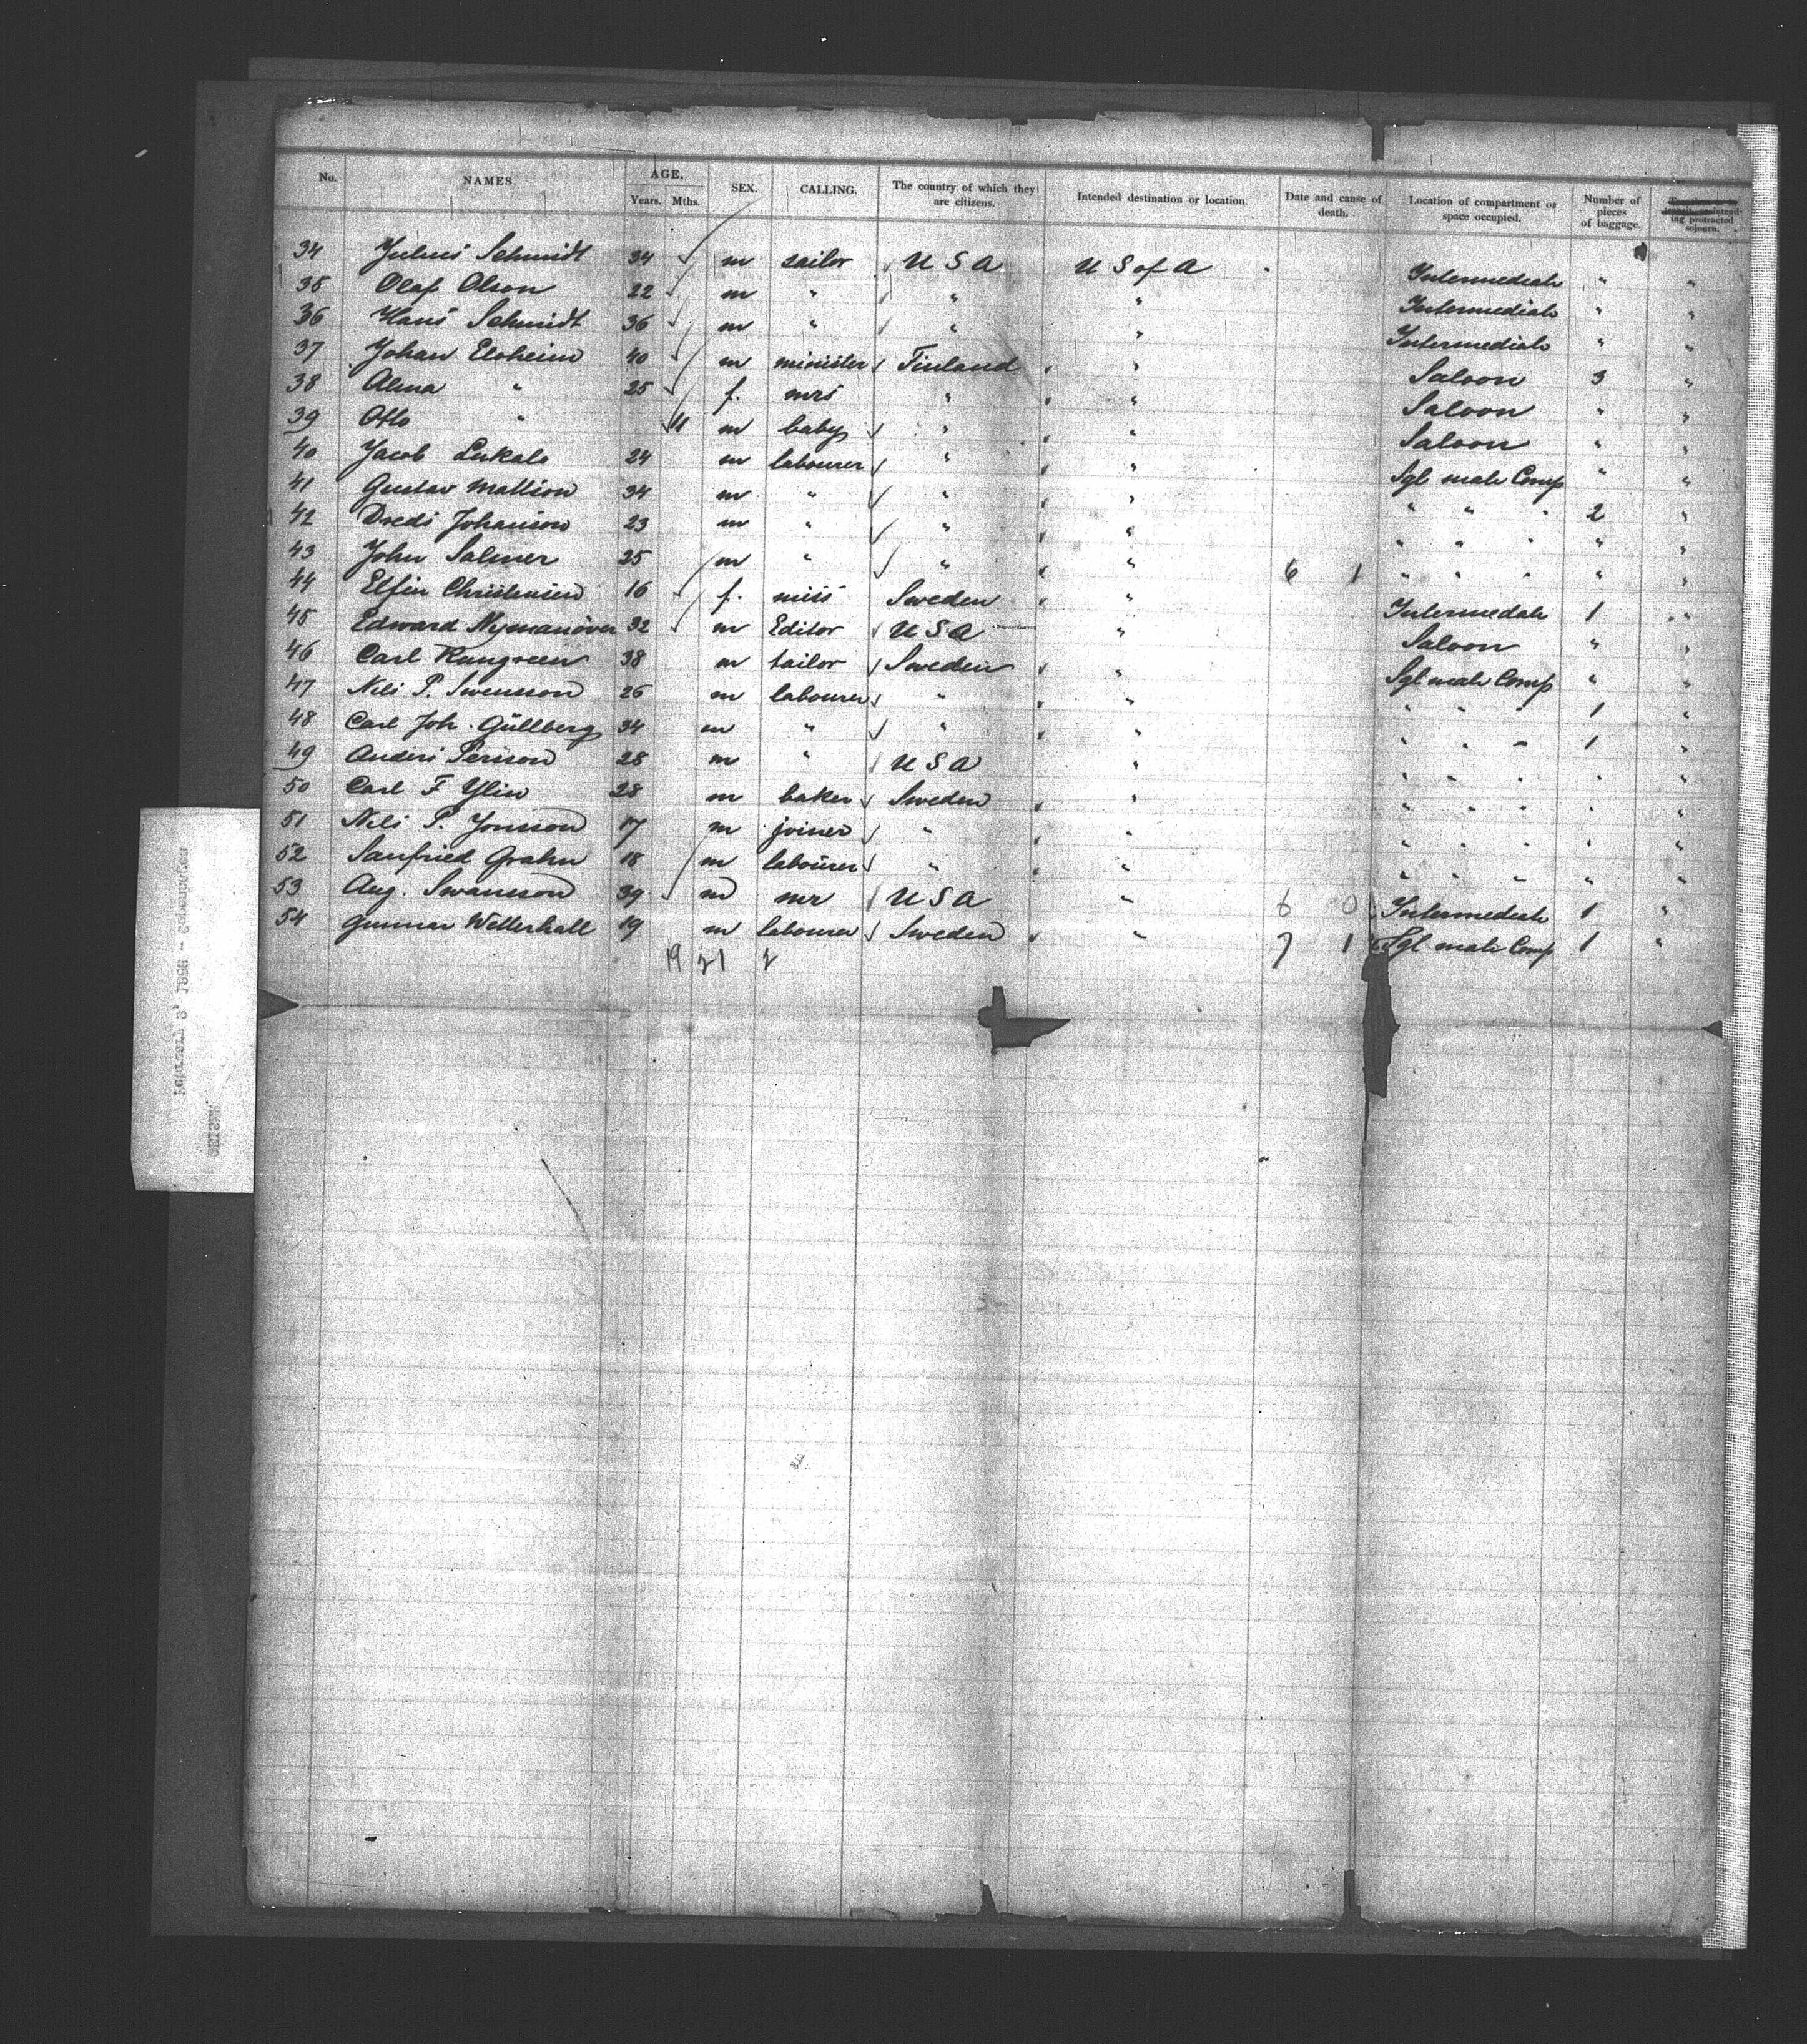 No. NAMES. AGE. Years. Mths. SEX. CALLING. The country of which they are citizens. Intended destination or location. Date and cause of death. Location of compartment or space occupied. Number of pieces of baggage. intending protracted sojourn.
34 Julius Schmidt 34 m sailor U S A U S of A Intermediate " "
35 Olaf Olson 22 m " " " Intermediate " "
36 Hans Schmidt 36 m " " " Intermediate " "
37 Johan Eloheimo 40 m minister Finland " Saloon 3 "
38 Alma " 25 f. mrs " " Saloon " "
39 Otto " 11 m baby " " Saloon " "
40 Jacob Lukala 24 m labourer " " Sgl male Comp " "
41 Gustav Mattson 34 m " " " " " " 2 "
42 Johanson 23 m " " " " " " " "
43 John Salmer 25 m " " " 6 1 " " " " "
44 Elfin Christensen 16 f. miss Sweden " Intermediate 1 "
45 Edward 32 m Editor U S A " Saloon " "
46 Carl Rungreen 38 m tailor Sweden " Sgl male Comp " "
47 Nils P. Swensson 26 m labourer " " " " " 1 "
48 Carl Joh. Gullberg 34 m " " " " " " 1 "
49 Anders Persson 28 m " U S A " " " " " "
50 Carl F Ylin 28 m baker Sweden " " " " " "
51 Nils P. Jonsson 17 m joiner " " " " " " "
52 Sanfried Grahn 18 m labourer " " " " " " "
53 Aug. Swansson 39 m mr U S A " 6 0 Intermediate 1 "
54 Gunnar Wetterhall 19 m labourer Sweden " 7 1 Sgl male Comp 1 "
19 21 2